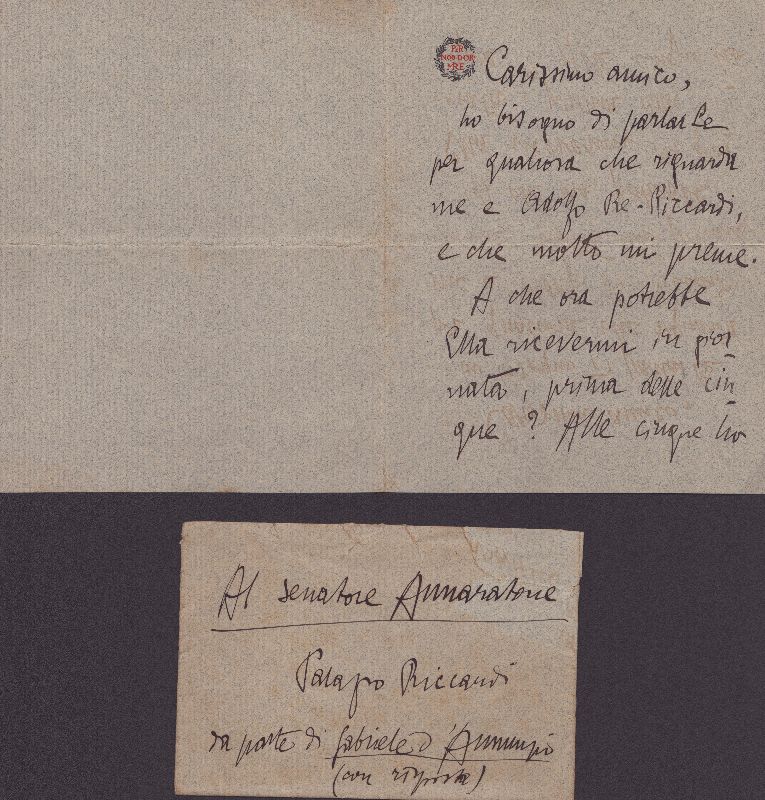 PER
NON DOR
MIRE
Carissimo amico,
ho bisogno di parlarLe
per qualcosa che riguarda
me e Adolfo Re-Riccardi,
e che molto mi preme.
A che ora potrebbe
Ella ricevermi in gior
nata, prima delle cin
que? Alle cinque ho
Al senatore Annaratone
Palazzo Riccardi
da parte di Gabriele d'Annunzio
(con risposta)